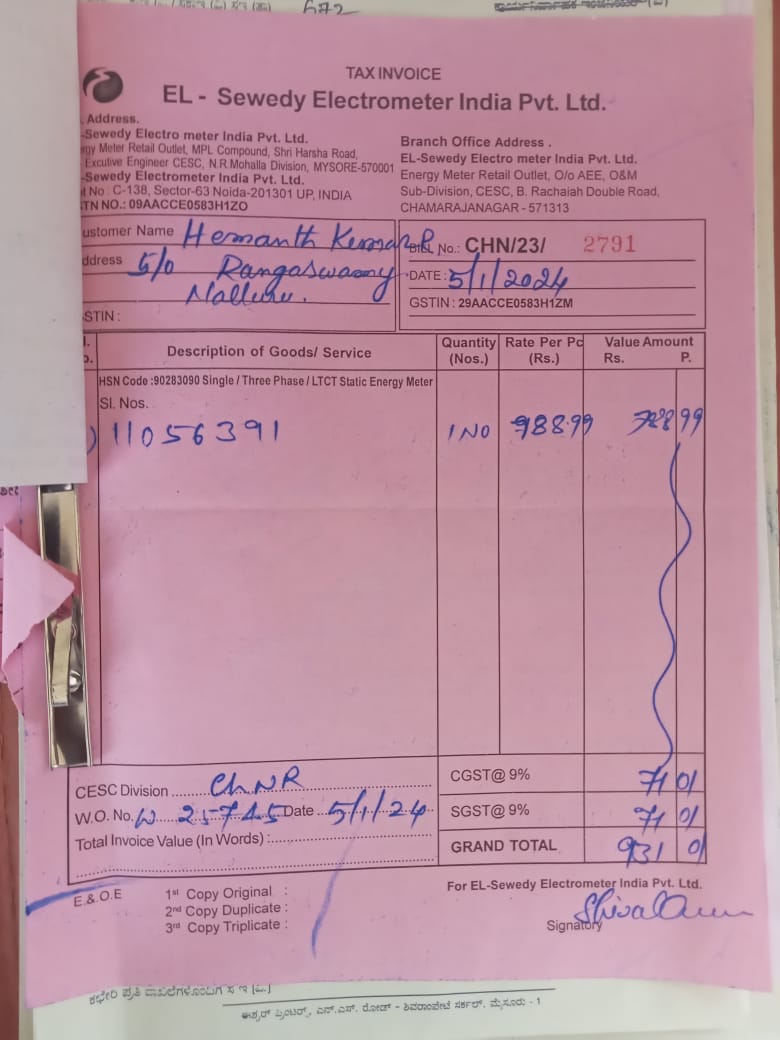 672
TAX INVOICE
EL - Sewedy Electrometer India Pvt. Ltd.
Address.
-Sewedy Electro meter India Pvt. Ltd.
gy Meter Retail Outlet, MPL Compound, Shri Harsha Road,
Excutive Engineer CESC, N.R.Mohalla Division, MYSORE-570001
-Sewedy Electrometer India Pvt. Ltd.
t No : C-138, Sector-63 Noida-201301 UP, INDIA
TN NO.: 09AACCE0583H1ZO
Branch Office Address .
EL-Sewedy Electro meter India Pvt. Ltd.
Energy Meter Retail Outlet, O/o AEE, O&M
Sub-Division, CESC, B. Rachaiah Double Road,
CHAMARAJANAGAR - 571313
ustomer Name Hemanth Kumar R
ddress S/o Rangaswamy
Nalluru.
STIN :
Bill No.: CHN/23/ 2791
DATE : 5/1/2024
GSTIN : 29AACCE0583H1ZM
Description of Goods/ Service
Quantity (Nos.)
Rate Per Pc (Rs.)
Value Amount
Rs. P.
HSN Code :90283090 Single / Three Phase / LTCT Static Energy Meter
Sl. Nos.
) 11056391 1 NO 988.99 788 99
CESC Division ChNR
W.O. No. W 25745 Date 5/1/24
Total Invoice Value (In Words) :
CGST@ 9% 71 01
SGST@ 9% 71 01
GRAND TOTAL 931 01
E.&.O.E
1st Copy Original :
2nd Copy Duplicate :
3rd Copy Triplicate :
For EL-Sewedy Electrometer India Pvt. Ltd.
Signatory
ಈಶ್ವರ್ ಪ್ರಿಂಟರ್ಸ್, ಎನ್.ಎಸ್. ರೋಡ್ - ಶಿವರಾಂಪೇಟೆ ಸರ್ಕಲ್, ಮೈಸೂರು - 1